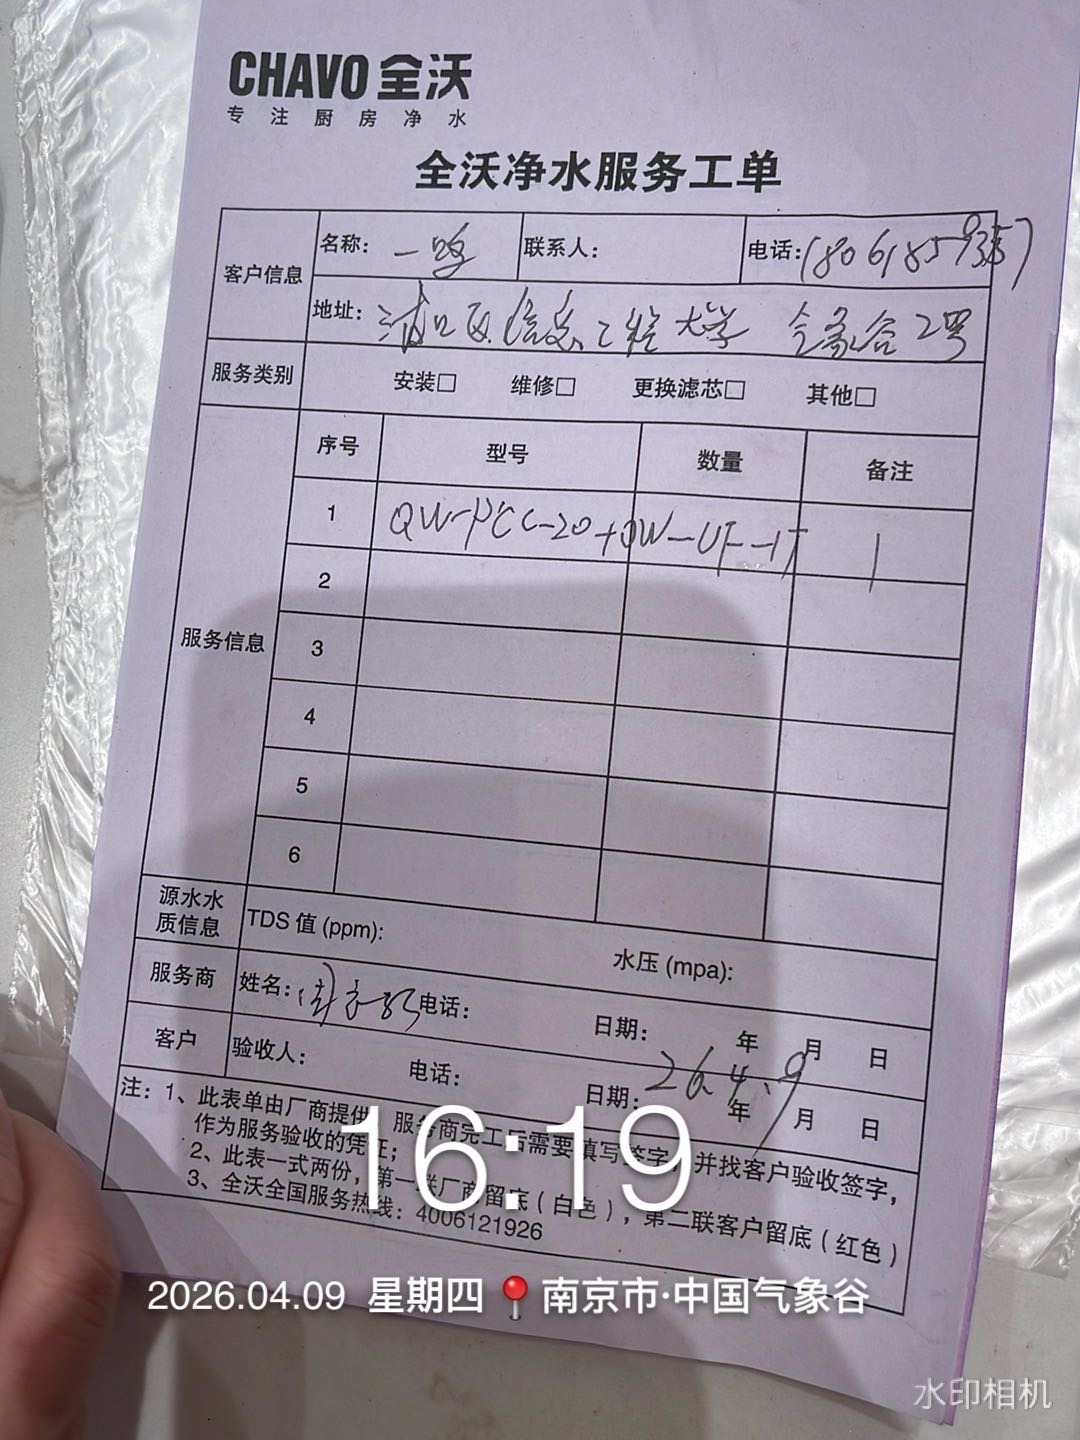 CHAVO 全沃
专注厨房净水
全沃净水服务工单
客户信息
名称： 一鸣
联系人：
电话：18061859357
地址： 浦口区信息工程大学 气象谷2号
服务类别
安装□ 维修□ 更换滤芯□ 其他□
服务信息
序号 型号 数量 备注
1 QW-PCC-20+QW-UF-1T 1
2
3
4
5
6
源水水质信息
TDS 值 (ppm): 水压 (mpa):
服务商 姓名： 电话： 日期： 年 月 日
26.4.9
客户 验收人： 电话： 日期： 年 月 日
注：1、此表单由厂商提供，服务商完工后需要填写签字，并找客户验收签字，
作为服务验收的凭证；
2、此表一式两份，第一联厂商留底（白色），第二联客户留底（红色）
3、全沃全国服务热线：4006121926
16:19
2026.04.09 星期四 南京市·中国气象谷
水印相机